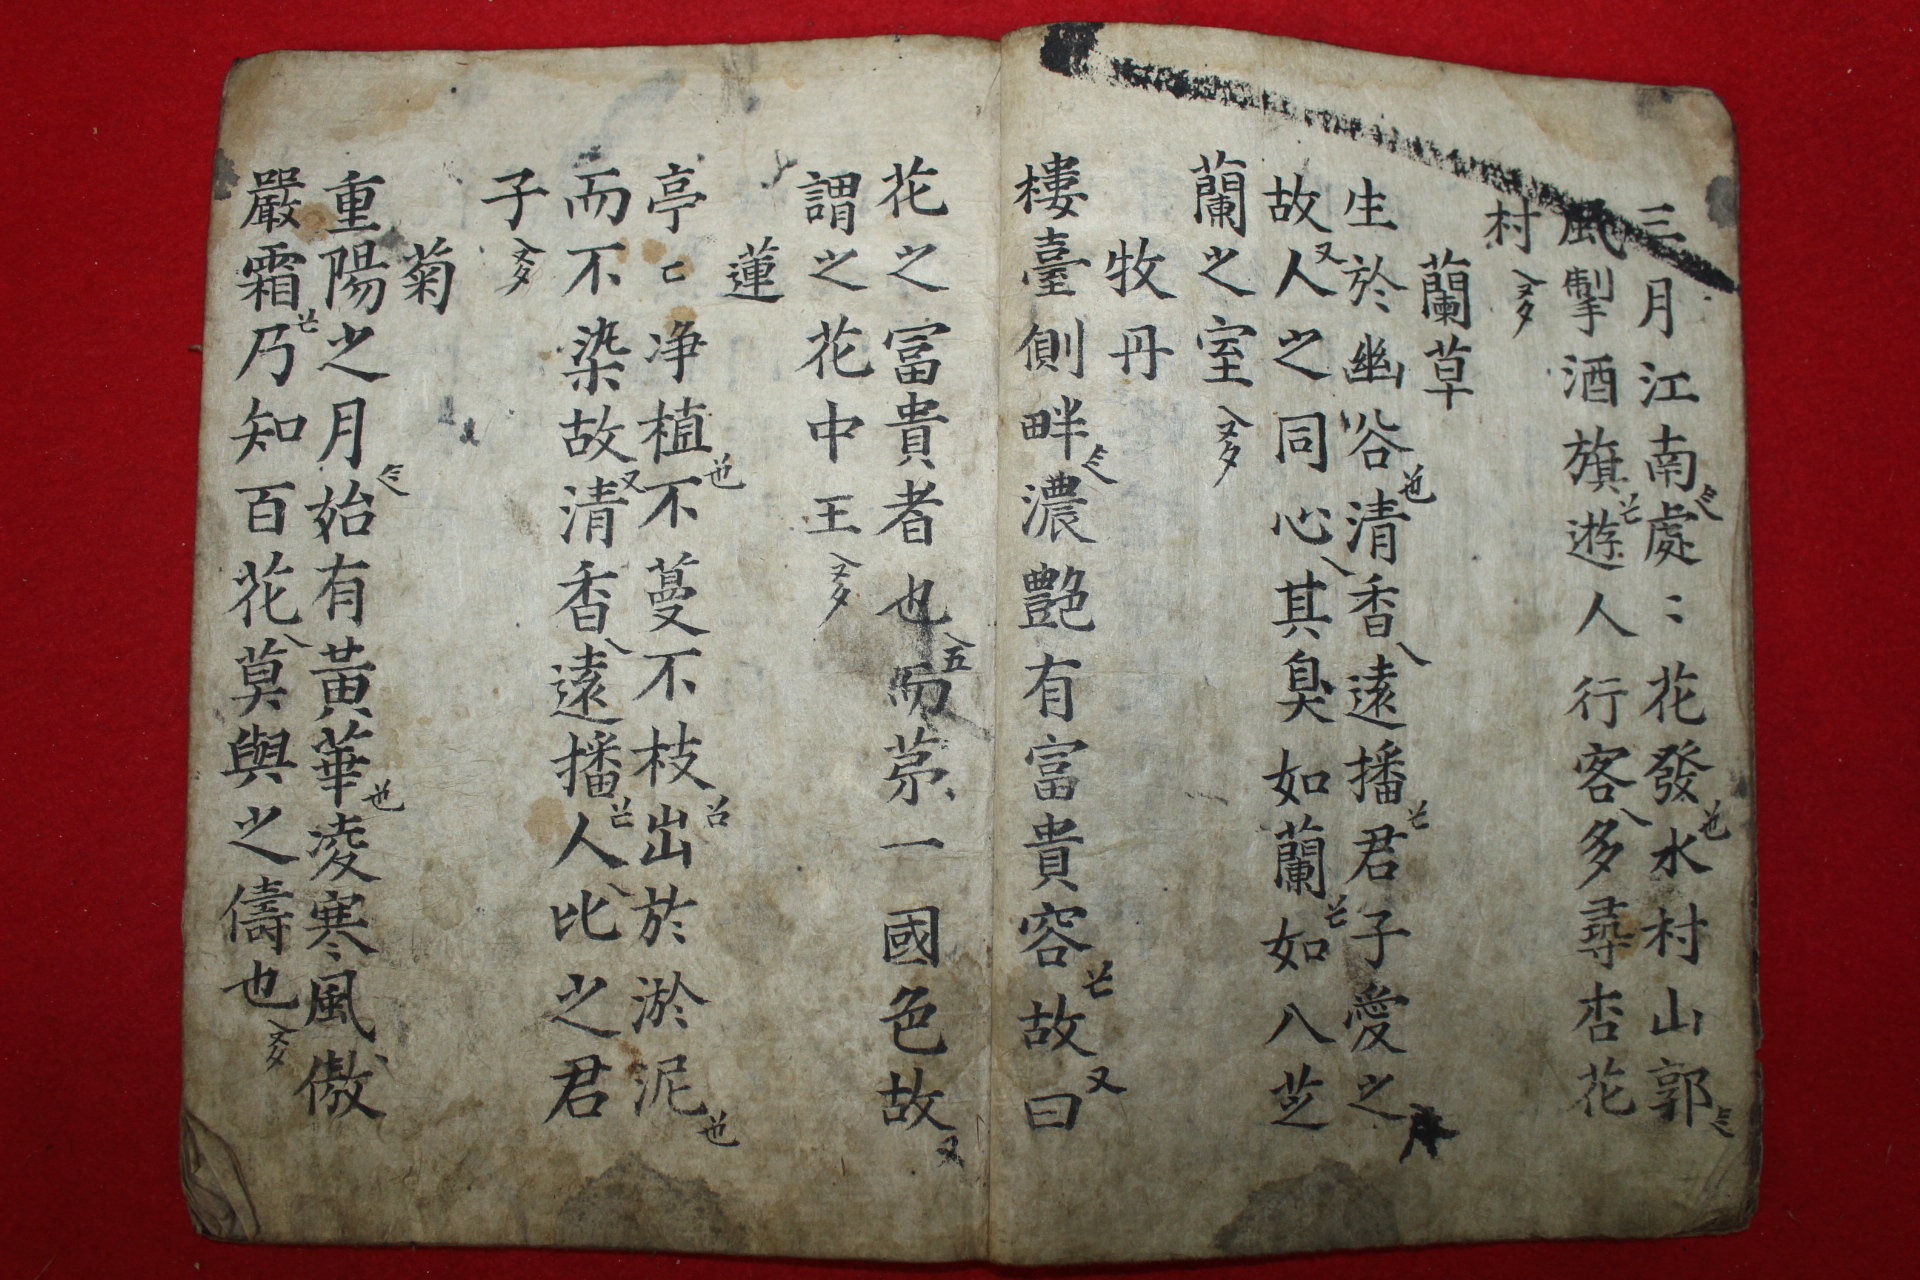 三月江南處〻花發水村山郭
風掣酒旗遊人行客多尋杏花
村
蘭草
生於幽谷清香遠播君子愛之
故人之同心其臭如蘭如入芝
蘭之室
牧丹
樓臺側畔濃艶有富貴容故曰
花之冨貴者也而苐一國色故
謂之花中王
蓮
亭〻净植不蔓不枝出於淤泥
而不染故清香遠播人比之君
子
菊
重陽之月始有黃華凌寒風傲
嚴霜乃知百花莫與之儔也